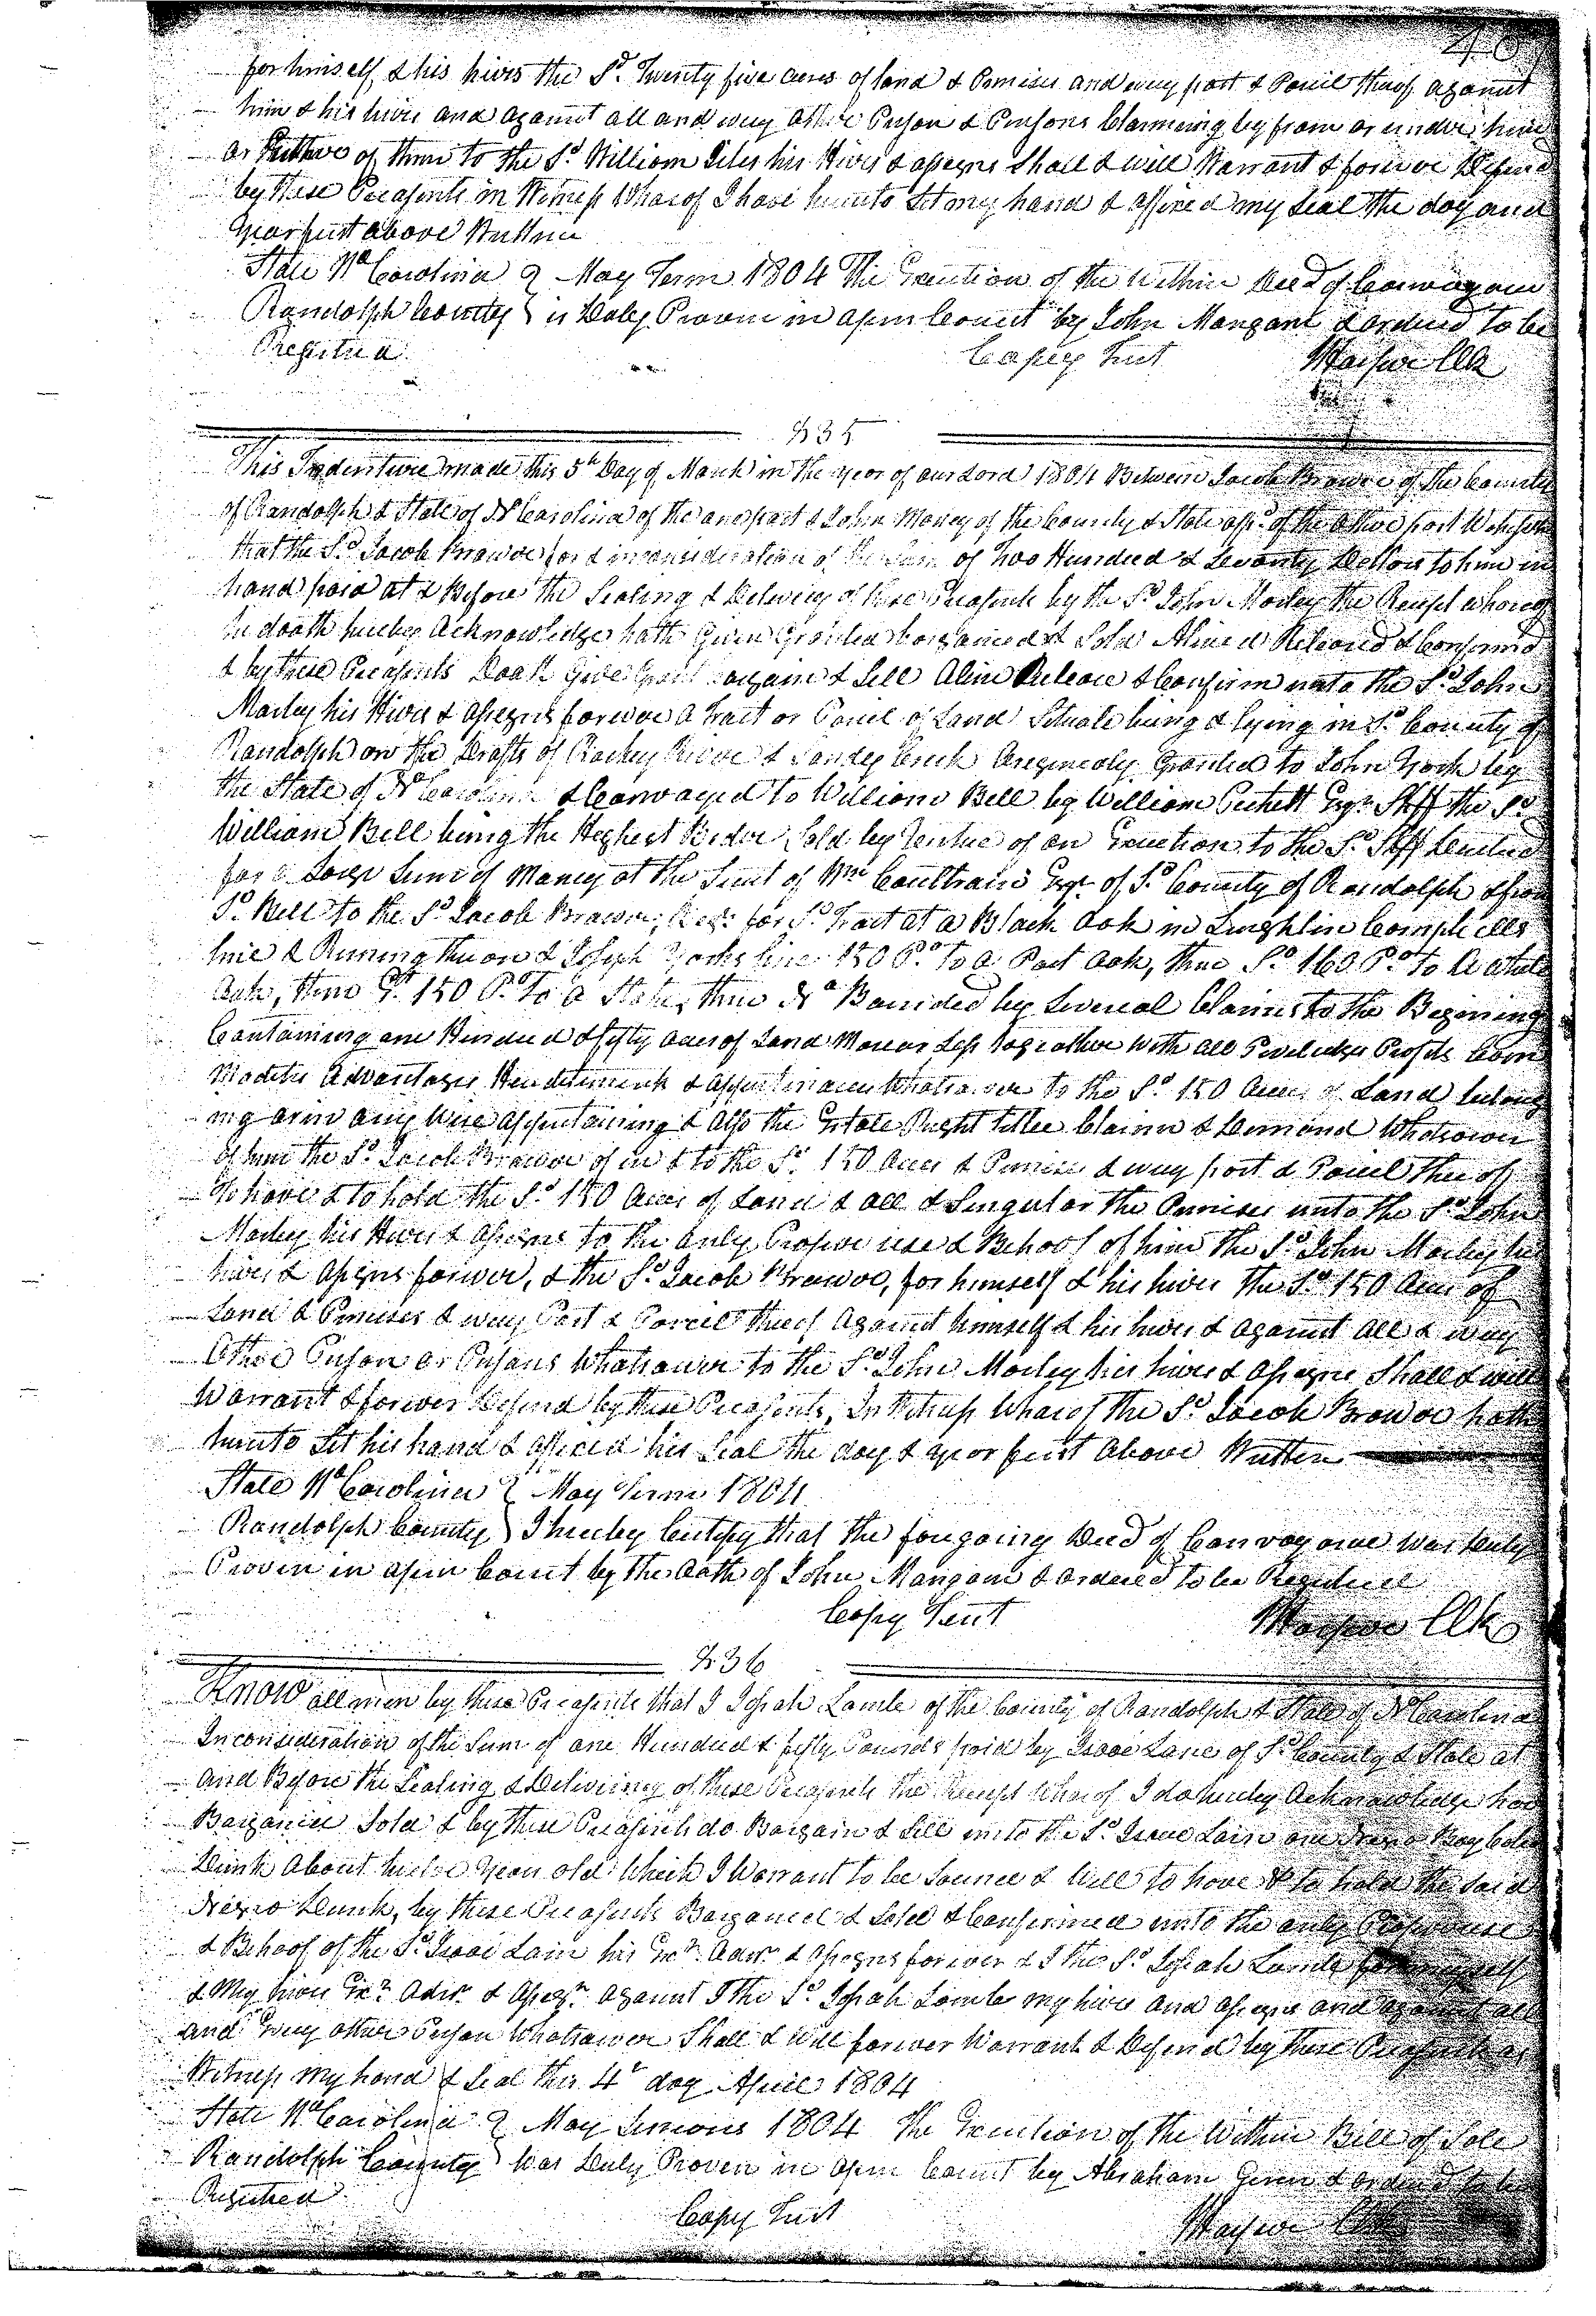 for himself & his hires the Sd. Twenty five acres of land & Premises and every part & Parcil thereof against
him & his hires and against all and every other Person & Persons Claimeing by from or under him
or Either of them to the Sd. William his Hires & assigns Shall & will Warrant & forever Defend
by these Preasents in Witness Whareof I have hereunto Set my hand & affixed my Seal the day and
year first above Written
State No. Carolina } May Term 1804 The Execution of the Within Deed of Convayance
Randolph County } is Duly Proven in open Court by John Mangam & ordered to be
Registred
Copey Test Harper Clk
835
This Indenture made this 5th Day of March in the year of our Lord 1804 Between Jacob Brower of the County
of Randolph & State of No. Carolina of the one part & John Marley of the County & State afsd. of the other part Witnesseth
that the Sd. Jacob Brower for & in consideration of the Sum of Two Hundred & Seventy Dollars to him in
hand paid at & Before the Sealing & Delivery of these Preasents by the Sd. John Marley the Receipt whareof
he doath hereby Acknowledge hath Given Granted Bargained & Sold Aliened Released & Confirmed
& by these Preasents Doath Give Grant Bargain & Sell Alien Release & Confirm unto the Sd. John
Marley his Hires & assigns forever a Tract or Parcil of Land Situate being & lying in Sd. County of
Randolph on the Drafts of Rockey River & Sandey Creek Oregenaly Granted to John York by
the State of No. Carolina & Convayed to William Bell by William Esqr. Shff the Sd.
William Bell being the Heghest Bider Sold by Vertue of an Execution to the Sd. Shff Derected
for a Large Sum of Maney at the Suit of Wm. Coultrain Esqr. of Sd. County of Randolph & from
Sd. Bell to the Sd. Jacob Brower, Beg. for Sd. Tract at a Black Oak in Campbells
line & Runing thereon & Joseph Yorks line 150 Po. To a Post Oak, thence So. 160 Po. To a White
Oak, thence Et. 150 Po. To a Stake, thence No. Bounded by Several Claims to the Begining
Containing one Hundred & fifty acres of Land More or Less Togeather With all Priviledges Profits Com
modities Advantages Hereditements & appurtinances Whatsoever to the Sd. 150 Acres of Land belong
ing or in any Wise appertaining & Also the Estate Right Title Claim & Demand Whatsoever
of him the Sd. Jacob Brower of in & to the Sd. 150 Acres & Premises & every part & Parcil thereof
To have & to hold the Sd. 150 Acres of Land & all & Singular the Premises unto the Sd. John
Marley his Hires & Assigns to the only Proper use & Behoof of him the Sd. John Marley his
hires & assigns forever, & the Sd. Jacob Brower, for himself & his hires the Sd. 150 Acres of
Land & Premises & every Part & Parcil thereof Against himself & his hires & against all & every
Other Person or Persons Whatsoever to the Sd. John Marley his hires & assigns Shall & will
Warrant & forever Defend by these Preasents, In Witness Whareof the Sd. Jacob Brower hath
hereunto Set his hand & affixed his Seal the day & year first above Written
State No. Carolina } May Term 1804
Randolph County } I hereby Certify that the foregoing Deed of Convayance was Duly
Proven in open Court by the Oath of John Mangam & ordered to be Registred
Copy Test Harper Clk
836
Know all men by these Preasents that I Josiah Lamb of the County of Randolph & State of No. Carolina
In consideration of the Sum of one Hundred & fifty Pounds paid by Isaac Lane of Sd. County & State at
and Before the Sealing & Delivering of these Preasents the Receipt Whareof I do hereby Acknowledge have
Barganed Sold & by these Preasents do Bargain & Sell unto the Sd. Isaac Lain one Negro Boy Called
About twelve Years old Which I Warrant to be Sound & Well to have & to hold the Said
Negro by these Preasents Barganed & Sold & Confirmed unto the only Proper use
& Behoof of the Sd. Isaac Lain his Exr. Admr. & Assigns forever & I the Sd. Josiah Lamb for myself
& My hires Exr. Admr. & Assigns. against I the Sd. Josiah Lamb my hires and assigns and against all
and Every other Person Whatsoever Shall & Will forever Warrant & Defend by these Preasents as
Witness my hand & Seal this 4th day April 1804
State No. Carolina } May Sessions 1804 The Execution of the Within Bill of Sale
Randolph County } Was Duly Proven in open Court by Abraham & ordered to be
Registred
Copy Test Harper Clk